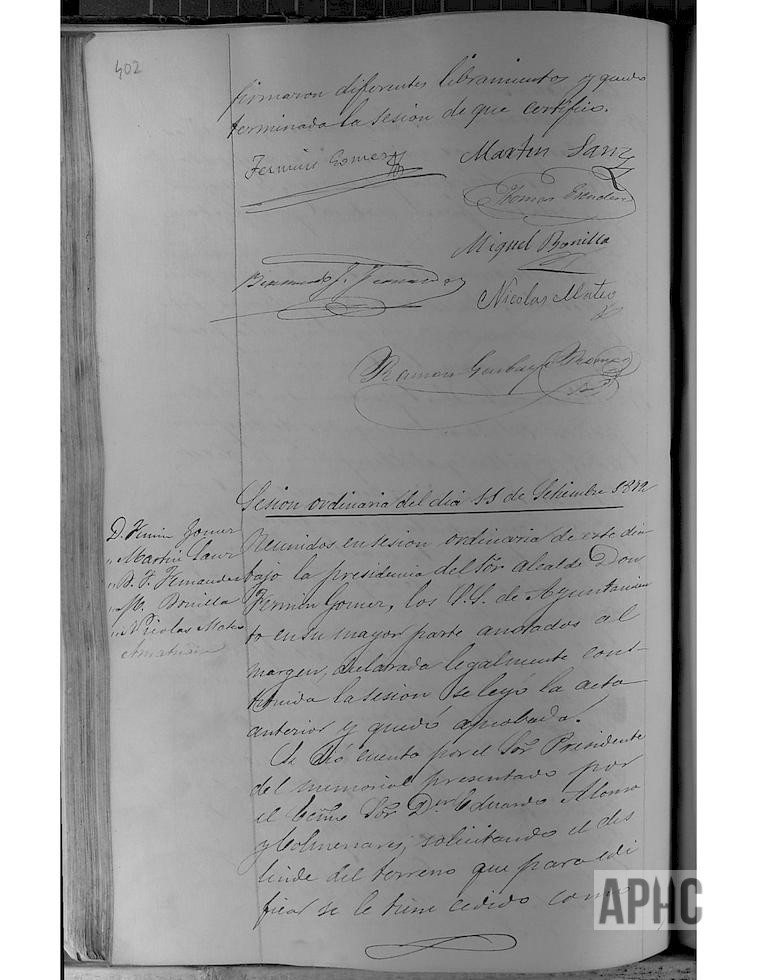 402
firmaron diferentes libramientos y quedo
terminada la sesion de que certifico.
Fermin Gomez
Martin Sanz
Thomas Escudero
Miguel Bonilla
Fernandez
Nicolas Mateo
Ramon
Sesion ordinaria del dia 11 de Setiembre
D. Fermin Gomez
" Martin Sanz
" B. F. Fernandez
" M. Bonilla
" Nicolas Mateo
Reunidos en sesion ordinaria de este dia
bajo la presidencia del Sor Alcalde Don
Fermin Gomez, los S.S. de Ayuntamien
to en su mayor parte anotados al
margen, declarada legalmente cons-
tituida la sesion se leyó la acta
anterior y quedó aprobada.
Se dió cuenta por el Sor Presidente
del memorial presentado por
el Sor Dn Eduardo Alonso
y Colmenares, solicitando el des
linde del terreno que para edi
ficar se le tiene cedido como
APHC